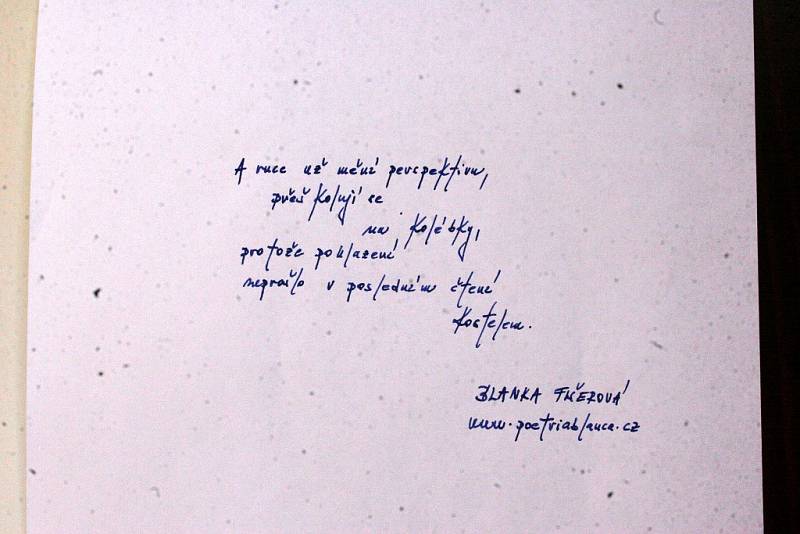 A ruce už mění perspektivu,
přeškolují se
na kolébky,
protože pohlazení
neprošlo v posledním čtení
kostelem.
BLANKA FIŠEROVÁ
www.poetriablanca.cz